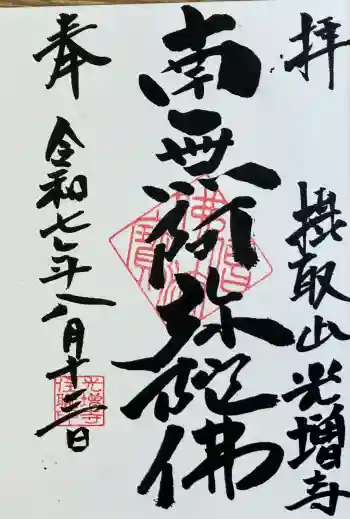 奉拝
南無阿弥陀佛
摂取山光増寺
令和七年八月十三日
佛法僧寶
光増寺